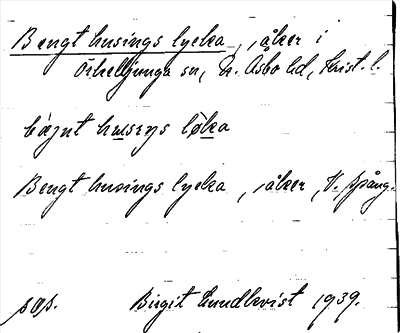 Bengt husings lycka, åker i
Örkelljunga sn, N. Åsbo hd, Krist. l.
bæŋnt husɪŋs løka
Bengt husings lycka, åker, V. Spång.
sås. Birgit Lundkvist 1939.